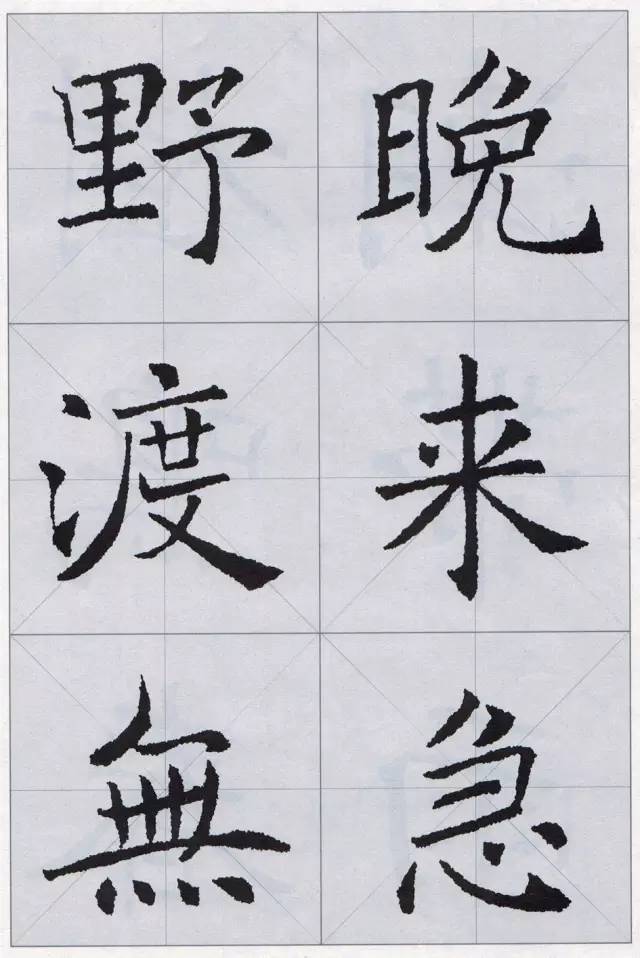 晚来急
野渡無